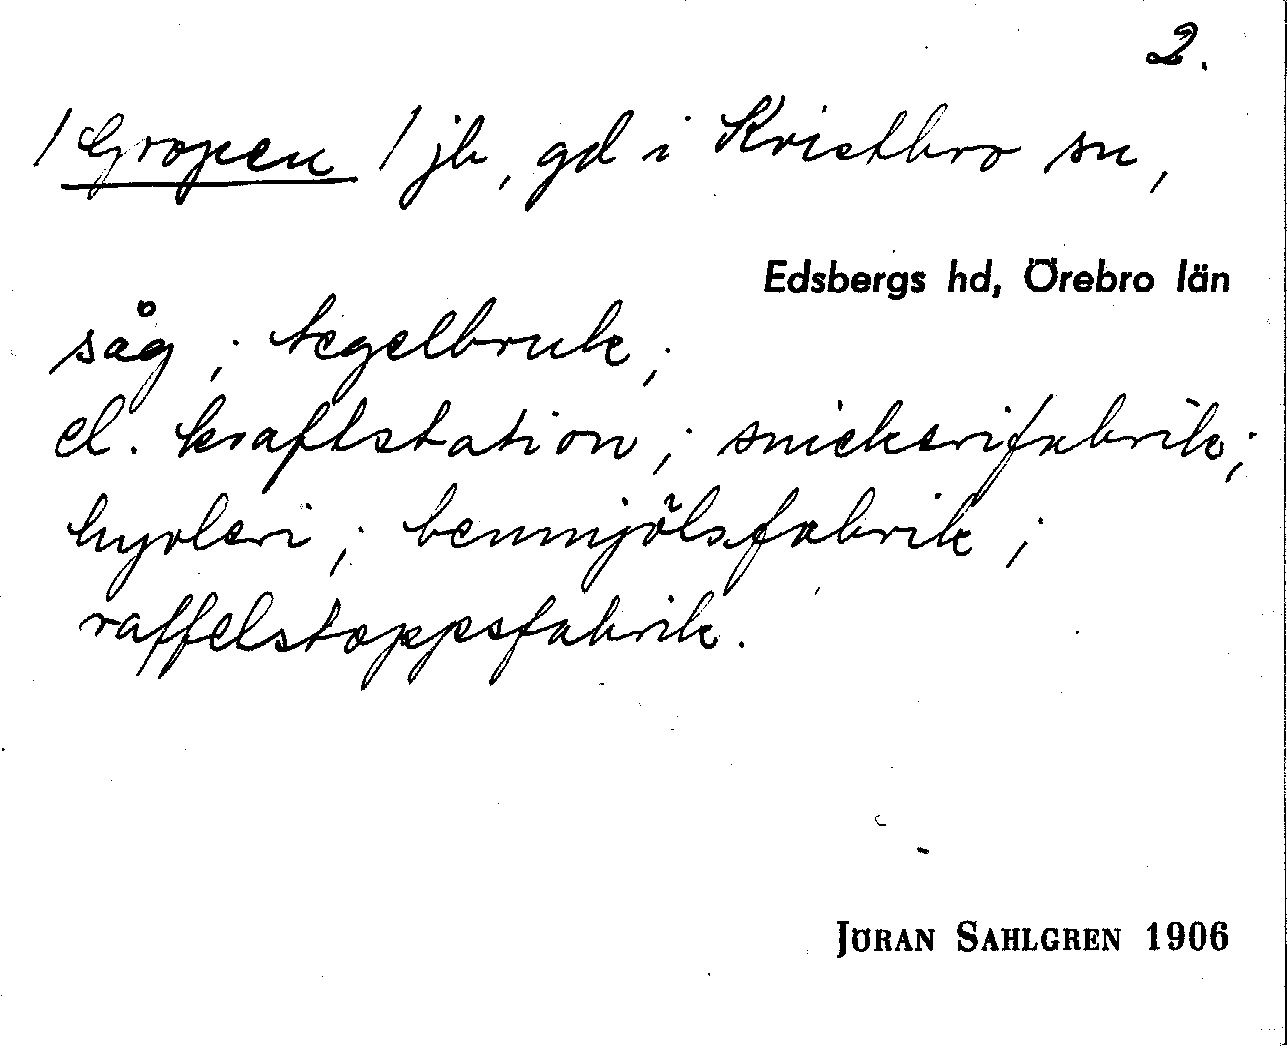 2.
/Gropen / jb, gd i Kvistbro sn,
Edsbergs hd, Örebro län
såg; tegelbruk;
el. kraftstation; snickerifabrik;
hyvleri; benmjölsfabrik;
raffelstoppsfabrik.
JÖRAN SAHLGREN 1906